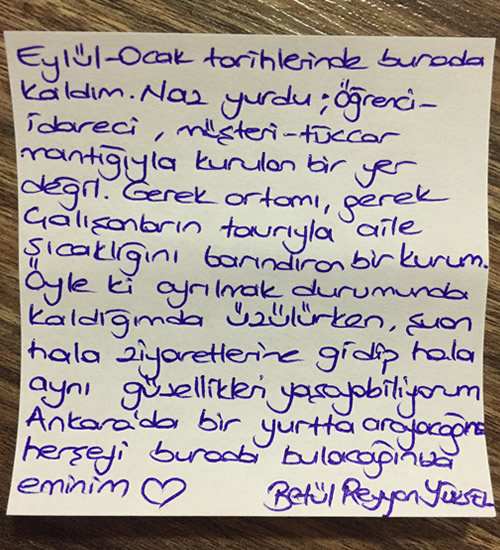 Eylül-Ocak tarihlerinde burada
kaldım. Naz yurdu; Öğrenci-
idareci, müşteri-tüccar
mantığıyla kurulan bir yer
değil. Gerek ortamı, gerek
Çalışanların tavrıyla aile
Sıcaklığını barındıran bir kurum.
Öyle ki ayrılmak durumunda
kaldığımda üzülürken, şuan
hala ziyaretlerine gidip hala
aynı güzellikleri yaşayabiliyorum
Ankara'da bir yurtta arayacağınız
herşeyi burada bulacağınıza
eminim ♡ Betül Reyyan YÜKSEL